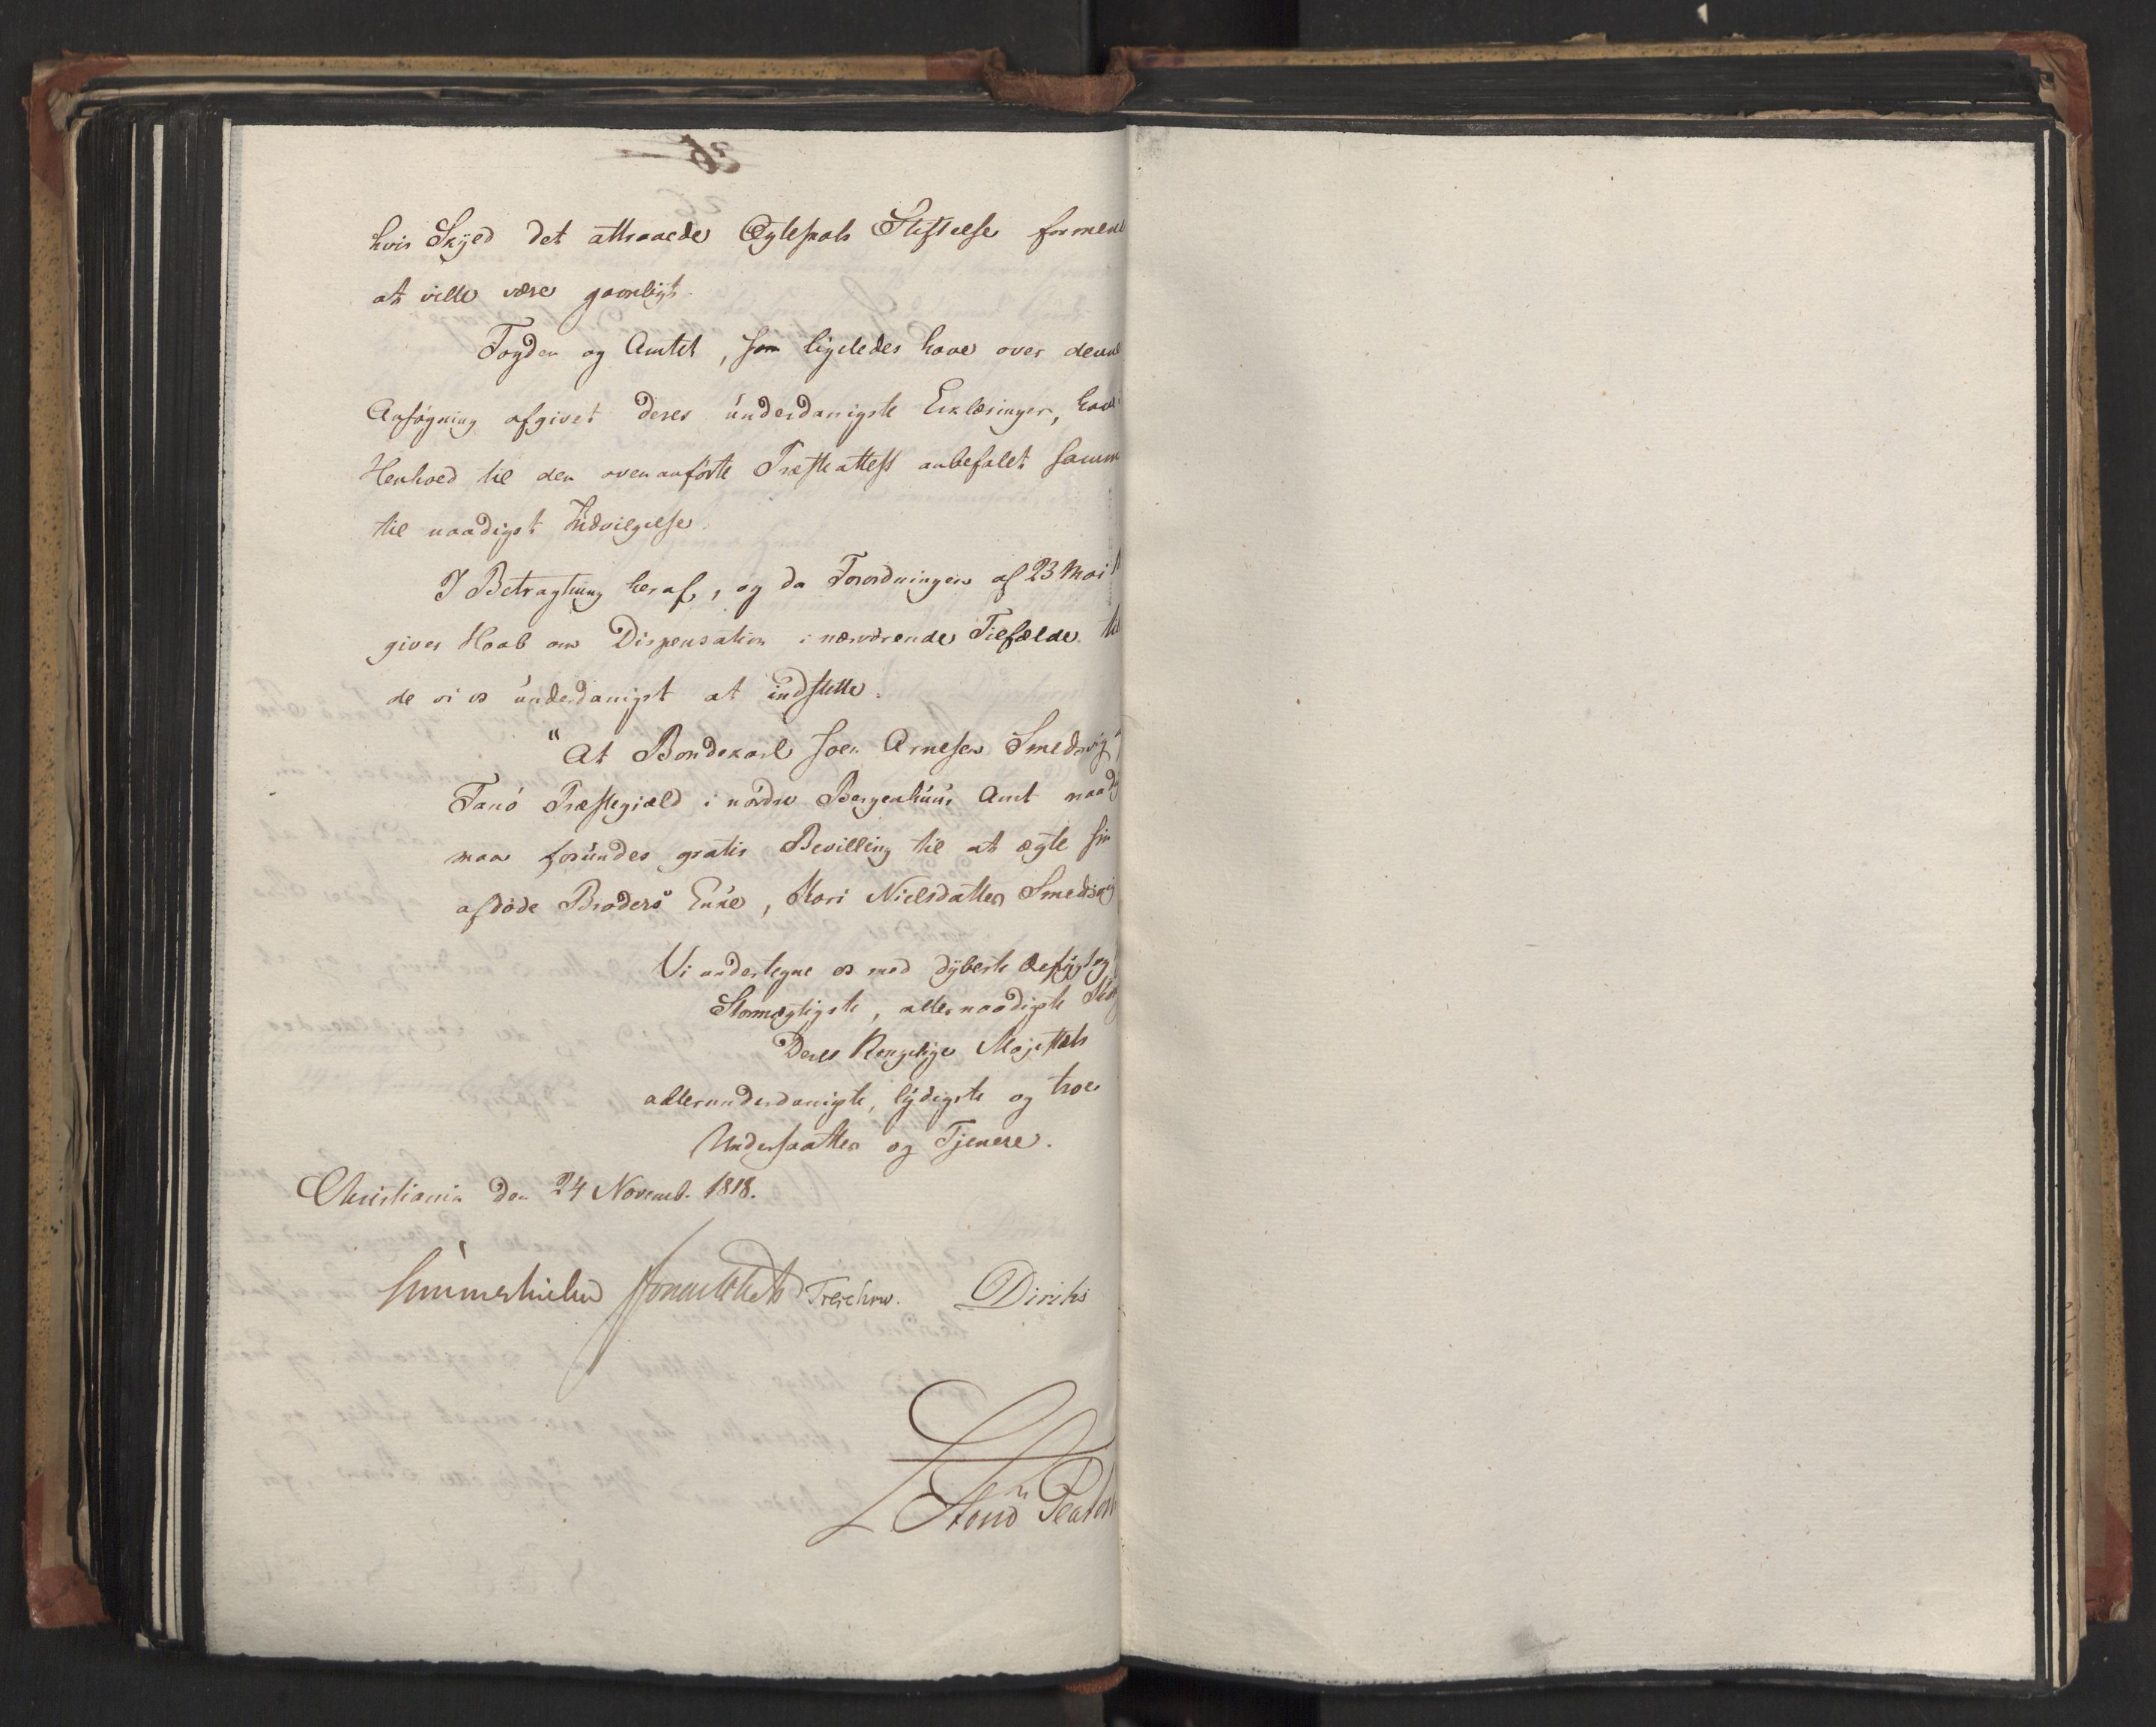 hvis Skyld det attraaede Ægteskabs Stiftelse formene
at ville være gavnligt.
Fogden og Amtet, som ligeledes have over denne
Ansøgning afgivet deres underdanigste Erklæringer, have i
Henhold til den ovenanførte Præsteattest anbefalet samme
til naadigst Indvilgelse.
I Betragtning heraf, og da Forordningen af 23 Mai
giver Haab om Dispensation i nærværende Tilfælde
de vi os underdanigst at indstille:
"At Bondekarl Arnesen Smedsvig
Præstegiæld i nordre Bergenhuus Amt naadigst
maa forundes gratis Bevilling til at ægte sin
afdøde Broders Enke, Kari Nielsdatter Smedsvig
Vi undertegne os med dybeste Ærefrygt
Stormægtigste, allernaadigste
Deres Kongelige Majestæts
allerunderdanigste, lydigste og troe
Undersaatter og Tjenere.
Christiania den 24 Novemb. 1818.
Sommerhielm Treschow. Diriks